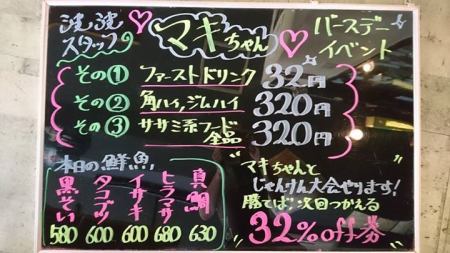 スタッフ
マキちゃん
バースデー
イベント
その① ファーストドリンク 32円
その② 角ハイ,ジムハイ 320円
その③ ササミ系フード全品 320円
本日の鮮魚
真鯛 630
ヒラマサ 680
イサキ 600
タコブツ 600
黒そい 580
マキちゃんと
じゃんけん大会やります!
勝てば次回つかえる
32%off券